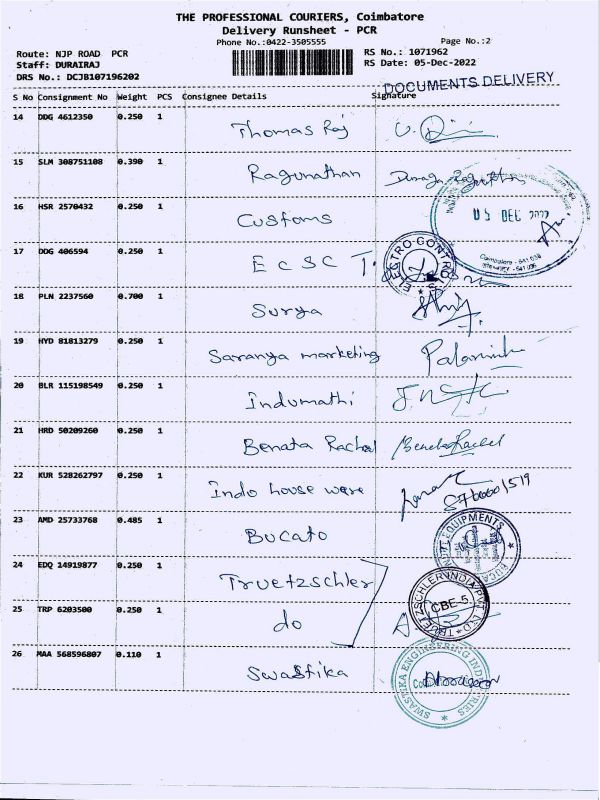 THE PROFESSIONAL COURIERS, Coimbatore
Delivery Runsheet - PCR
Phone No.:0422-3505555 Page No.:2
Route: NJP ROAD PCR RS No.: 1071962
Staff: DURAIRAJ RS Date: 05-Dec-2022
DRS No.: DCJB107196202
DOCUMENTS DELIVERY
S No Consignment No Weight PCS Consignee Details Signature
14 DDG 4612350 0.250 1 Thomas Raj
15 SLM 308751108 0.390 1 Ragunathan
16 HSR 2570432 0.250 1 Customs
05 DEC 2022
Coimbatore - 641
17 DDG 406594 0.250 1 ECSC T.
ELECTRO CONTROLS
18 PLN 2237560 0.700 1 Surya
19 HYD 81813279 0.250 1 Saranya marketing
20 BLR 115198549 0.250 1 Indumathi
21 HRD 50209260 0.250 1 Benata Rachel
22 KUR 528262797 0.250 1 Indo house ware
23 AMD 25733768 0.485 1 Bucato
EQUIPMENTS
24 EDQ 14919877 0.250 1 Truetzschler
TRUETZSCHLER INDIA PVT LTD
CBE-5
25 TRP 6203500 0.250 1 do
26 MAA 568596807 0.110 1 Swastika
SWASTIKA ENGINEERING INDUSTRIES